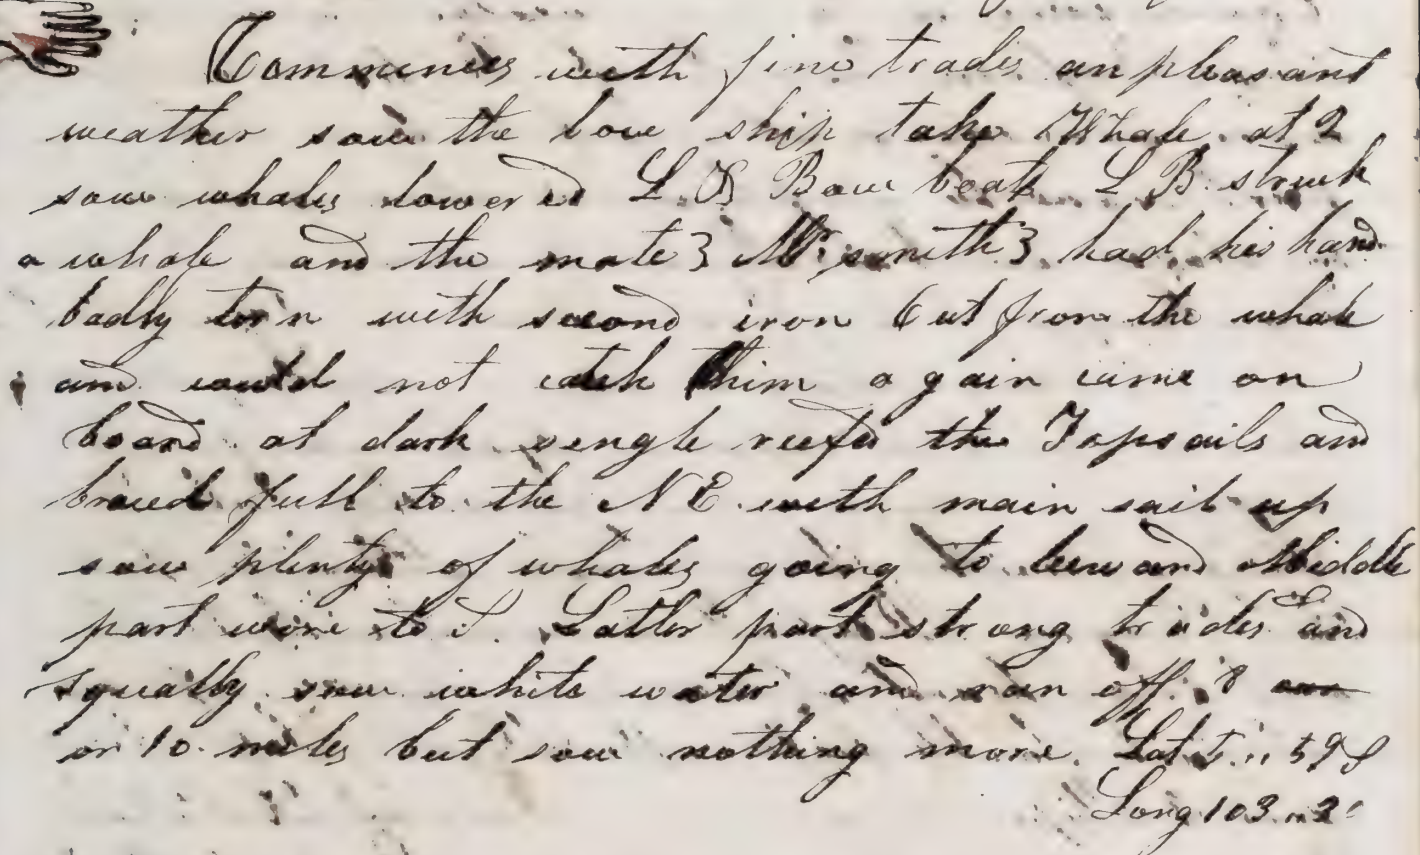 Commences with fine trades an pleasant
weather saw the bow ship take Whale at 2
saw whales lowered L & Bow boats L B struck
a whale and the mate 3 Mr smith 3 had his hand
badly torn with second iron Cut from the whale
and could not catch him again came on
board at dark single reefd the Topsails and
braced full to the N E with main sail up
saw plenty of whales going to leeward Middle
part wore to S. Latter part strong trades and
squally saw white water and ran off 8
or 10 miles but saw nothing more. Lat 5 " 59 S
Long 103 " 2